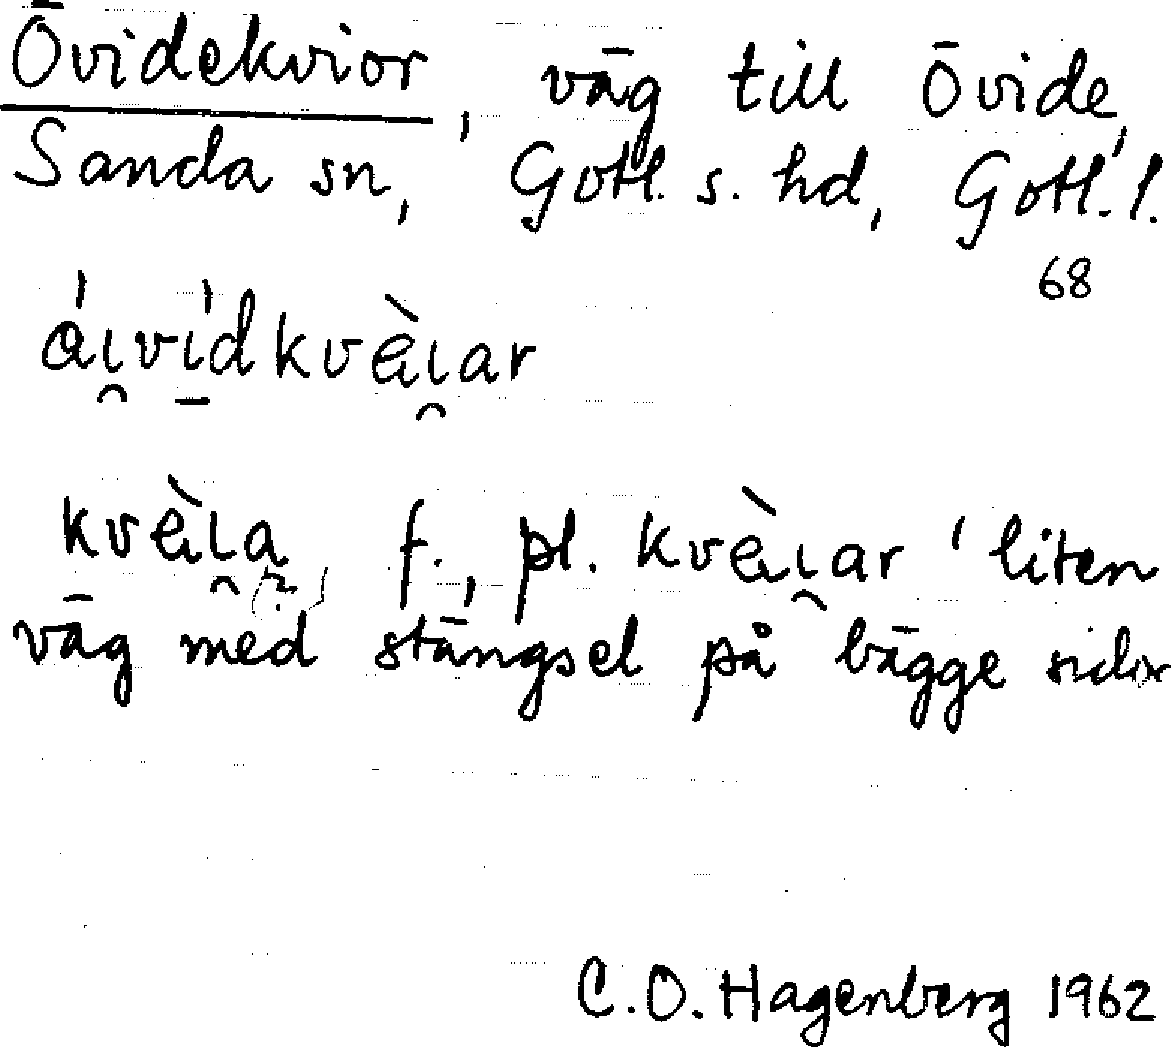 Övidekvior, väg till Övide,
Sanda sn, Gotl. s. hd, Gotl. l.
68
ά̯ɩvɩ̱́dkvὲɩ̯ar
kvὲɩ̯a f., pl. kvὲɩ̯ar 'liten
väg med stängsel på bägge sidor
C.O. Hagenberg 1962